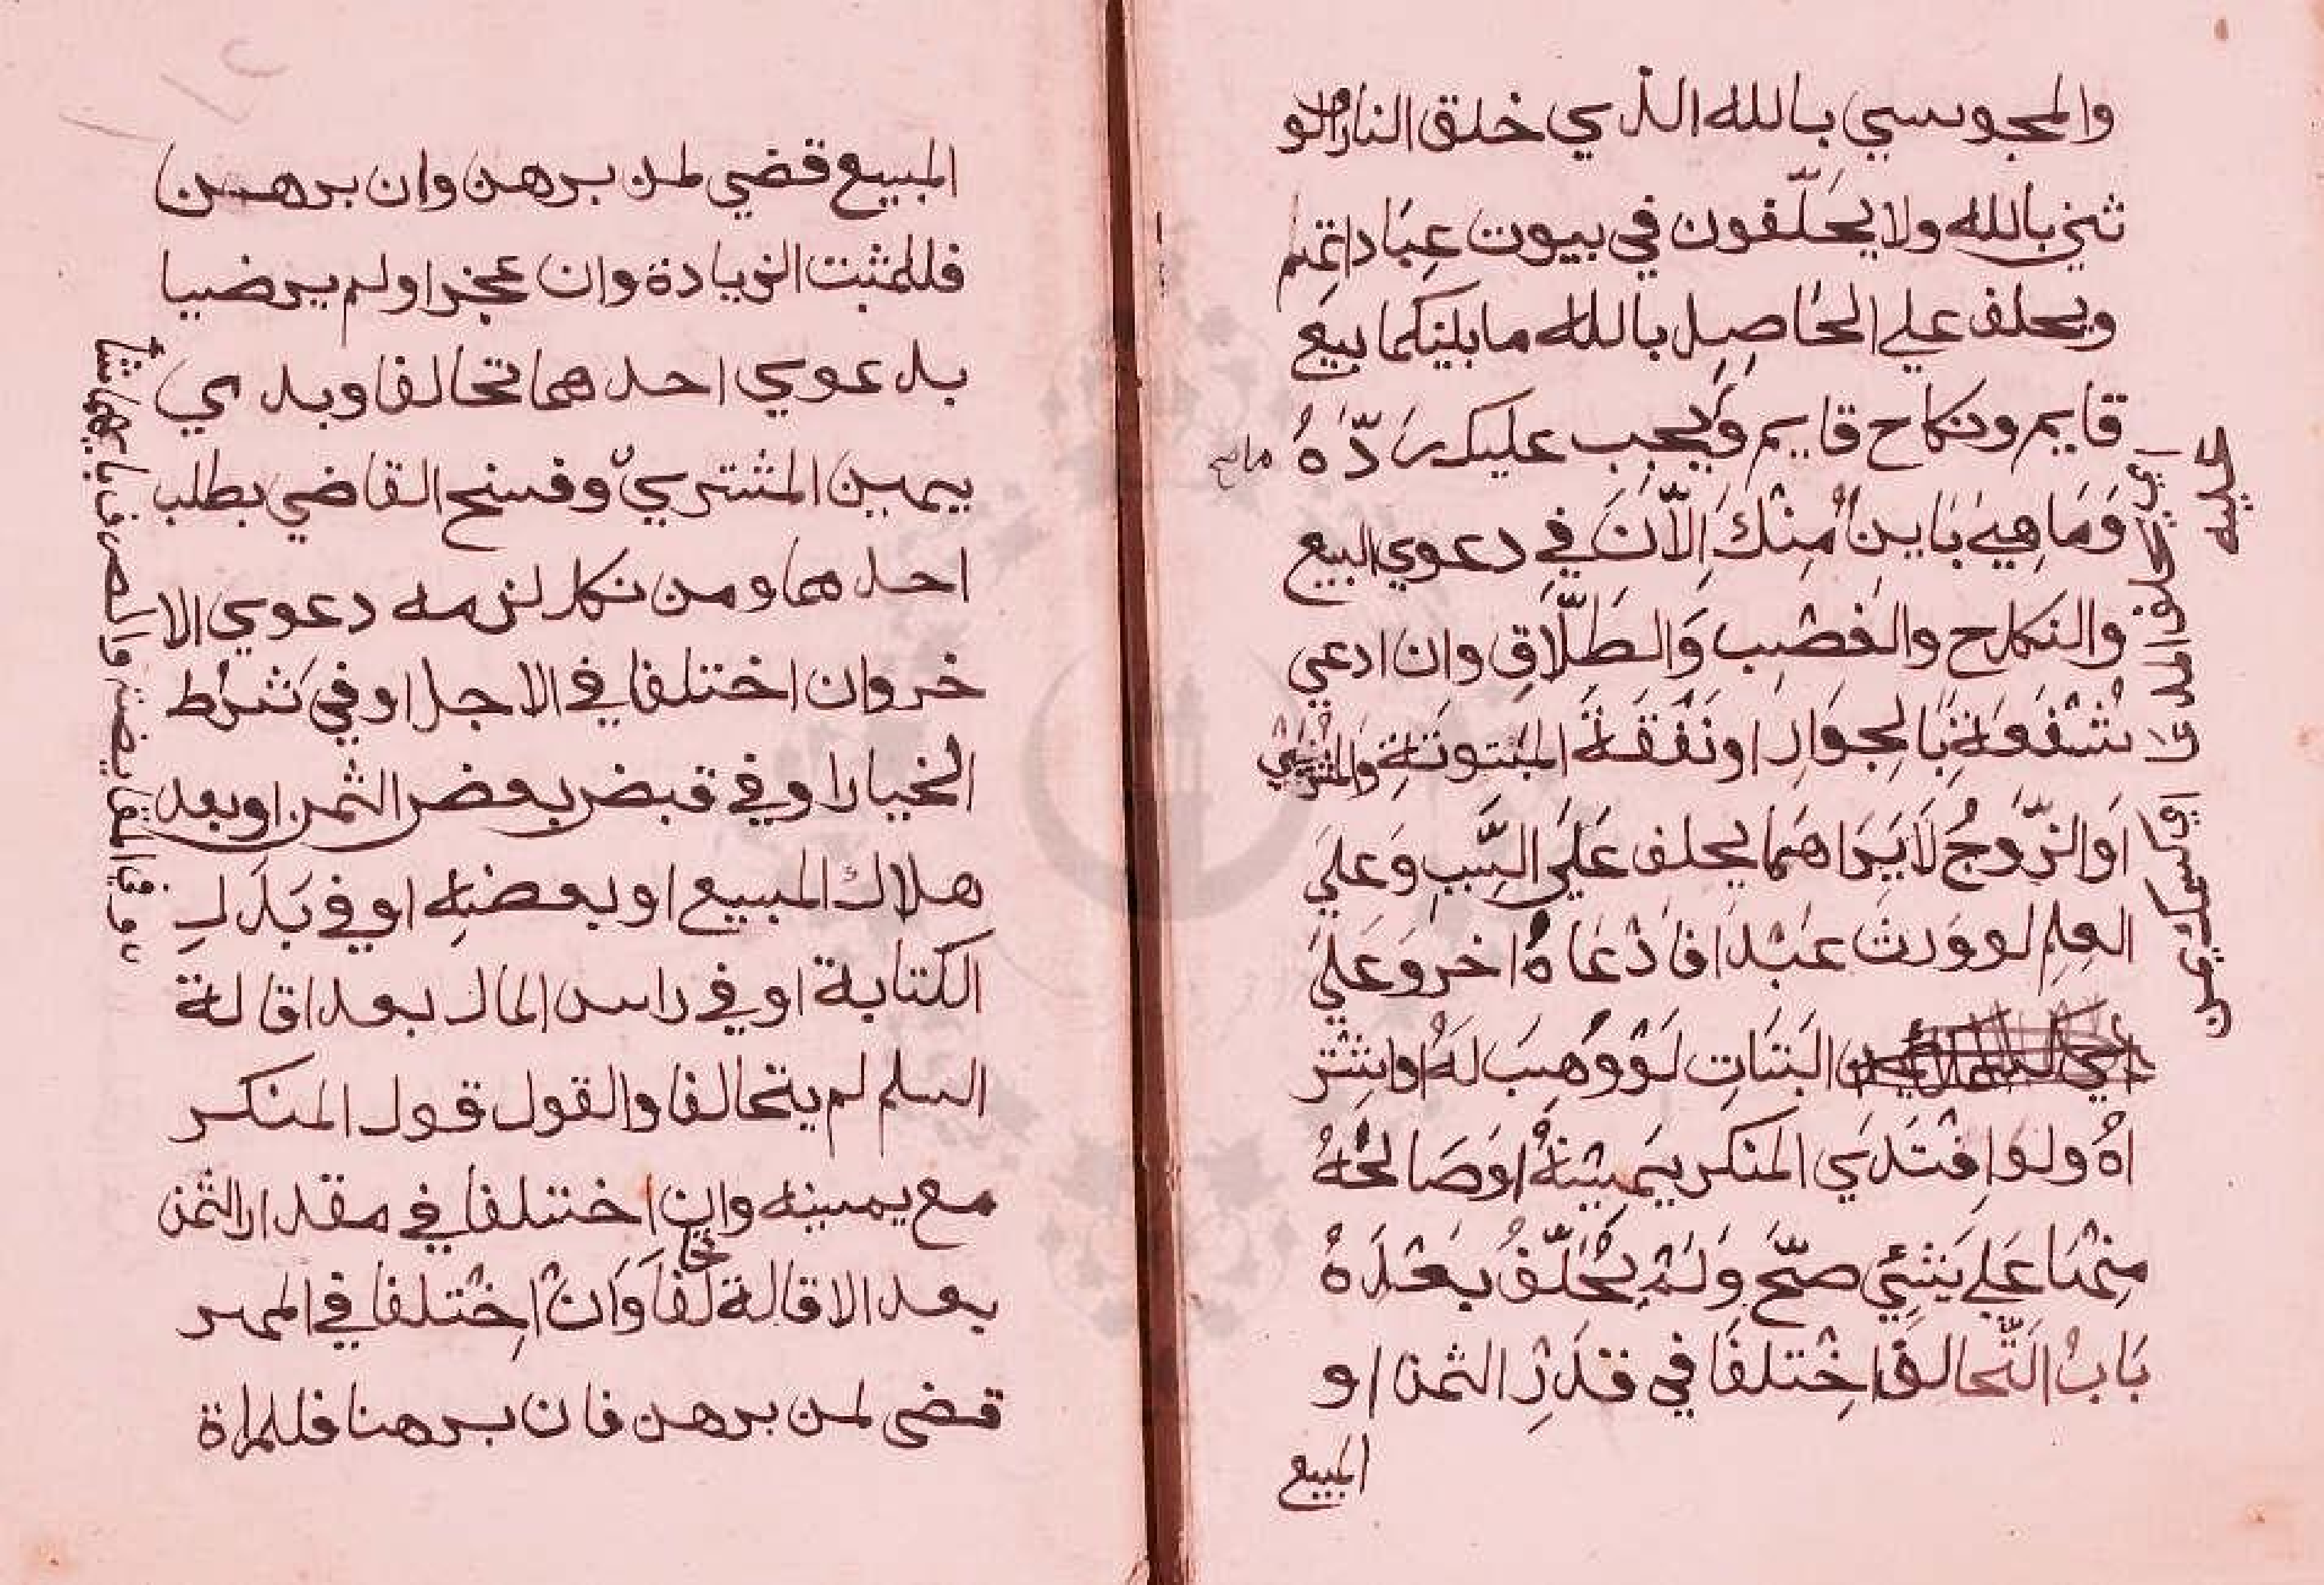 والمجوسي بالله الذي خلق النار والو
ثني بالله ولا يحلّفون في بيوت عِبَاداتهم
ويحلف علي الحَاصِلِ بالله ما بينكما بيع
قايم ونكاح قايم وَيجب عليك رَدّهُ
وَمَا هِيَ بَاين مِنْكَ الآنَ فِي دعوي البيع
والنكاح والغصْب وَالطَّلَاقِ وان ادعي
شُفْعَةً بَالجِوَارِ او نَفَقَةَ المبْتوتَةِ وَالمُشْتَرِي
اَوالزّوجُ لَا يَرَاهمَا يحلف عَلَي السَّبَبِ وَعليَ
العِلِم لو وَرِثَ عَبْدًا فَادْعَاهُ اخر وَعَلَيَ
البَتَاتِ لَوْ وُهِبَ لَهُ اواشْتَر
اهُ ولوا فْتَدَي المنكر يَمِينَهُ اوصَالحَهُ
مِنْهَا عَلي شَئِي صَحَّ وَلَمْ يُحَلّفُ بَعْدَهُ
بَابُ التّحالف اخِتلفَا في قدْرِ الثمن او
المبيع
المبيع قضي لمن برهن وان برهن
فللمثبت الزيادة وان عجزا ولم يرضيا
بدعوي احدهما تحالفا وبدي
بيمين المشتري وفسخ القاضي بطلب
احدهما ومن نكل لزمه دعوي الا
خر وان اختلفا في الاجل او في شَرْط
الخيار او في قبض بعض الثمن او بعد
هلاك المبيع او بعضِه او في بَدَلِ
الكتابة او في راس المال بعد اقالة
السلم لم يتحالفا والقول قول المنكر
مع يمينه وان اختلفا في مقدار الثمن
بعد الاقالة تحا لفا وَانْ اخِتلفا في المهر
قضي لمن برهن فان برهنا فللمراة